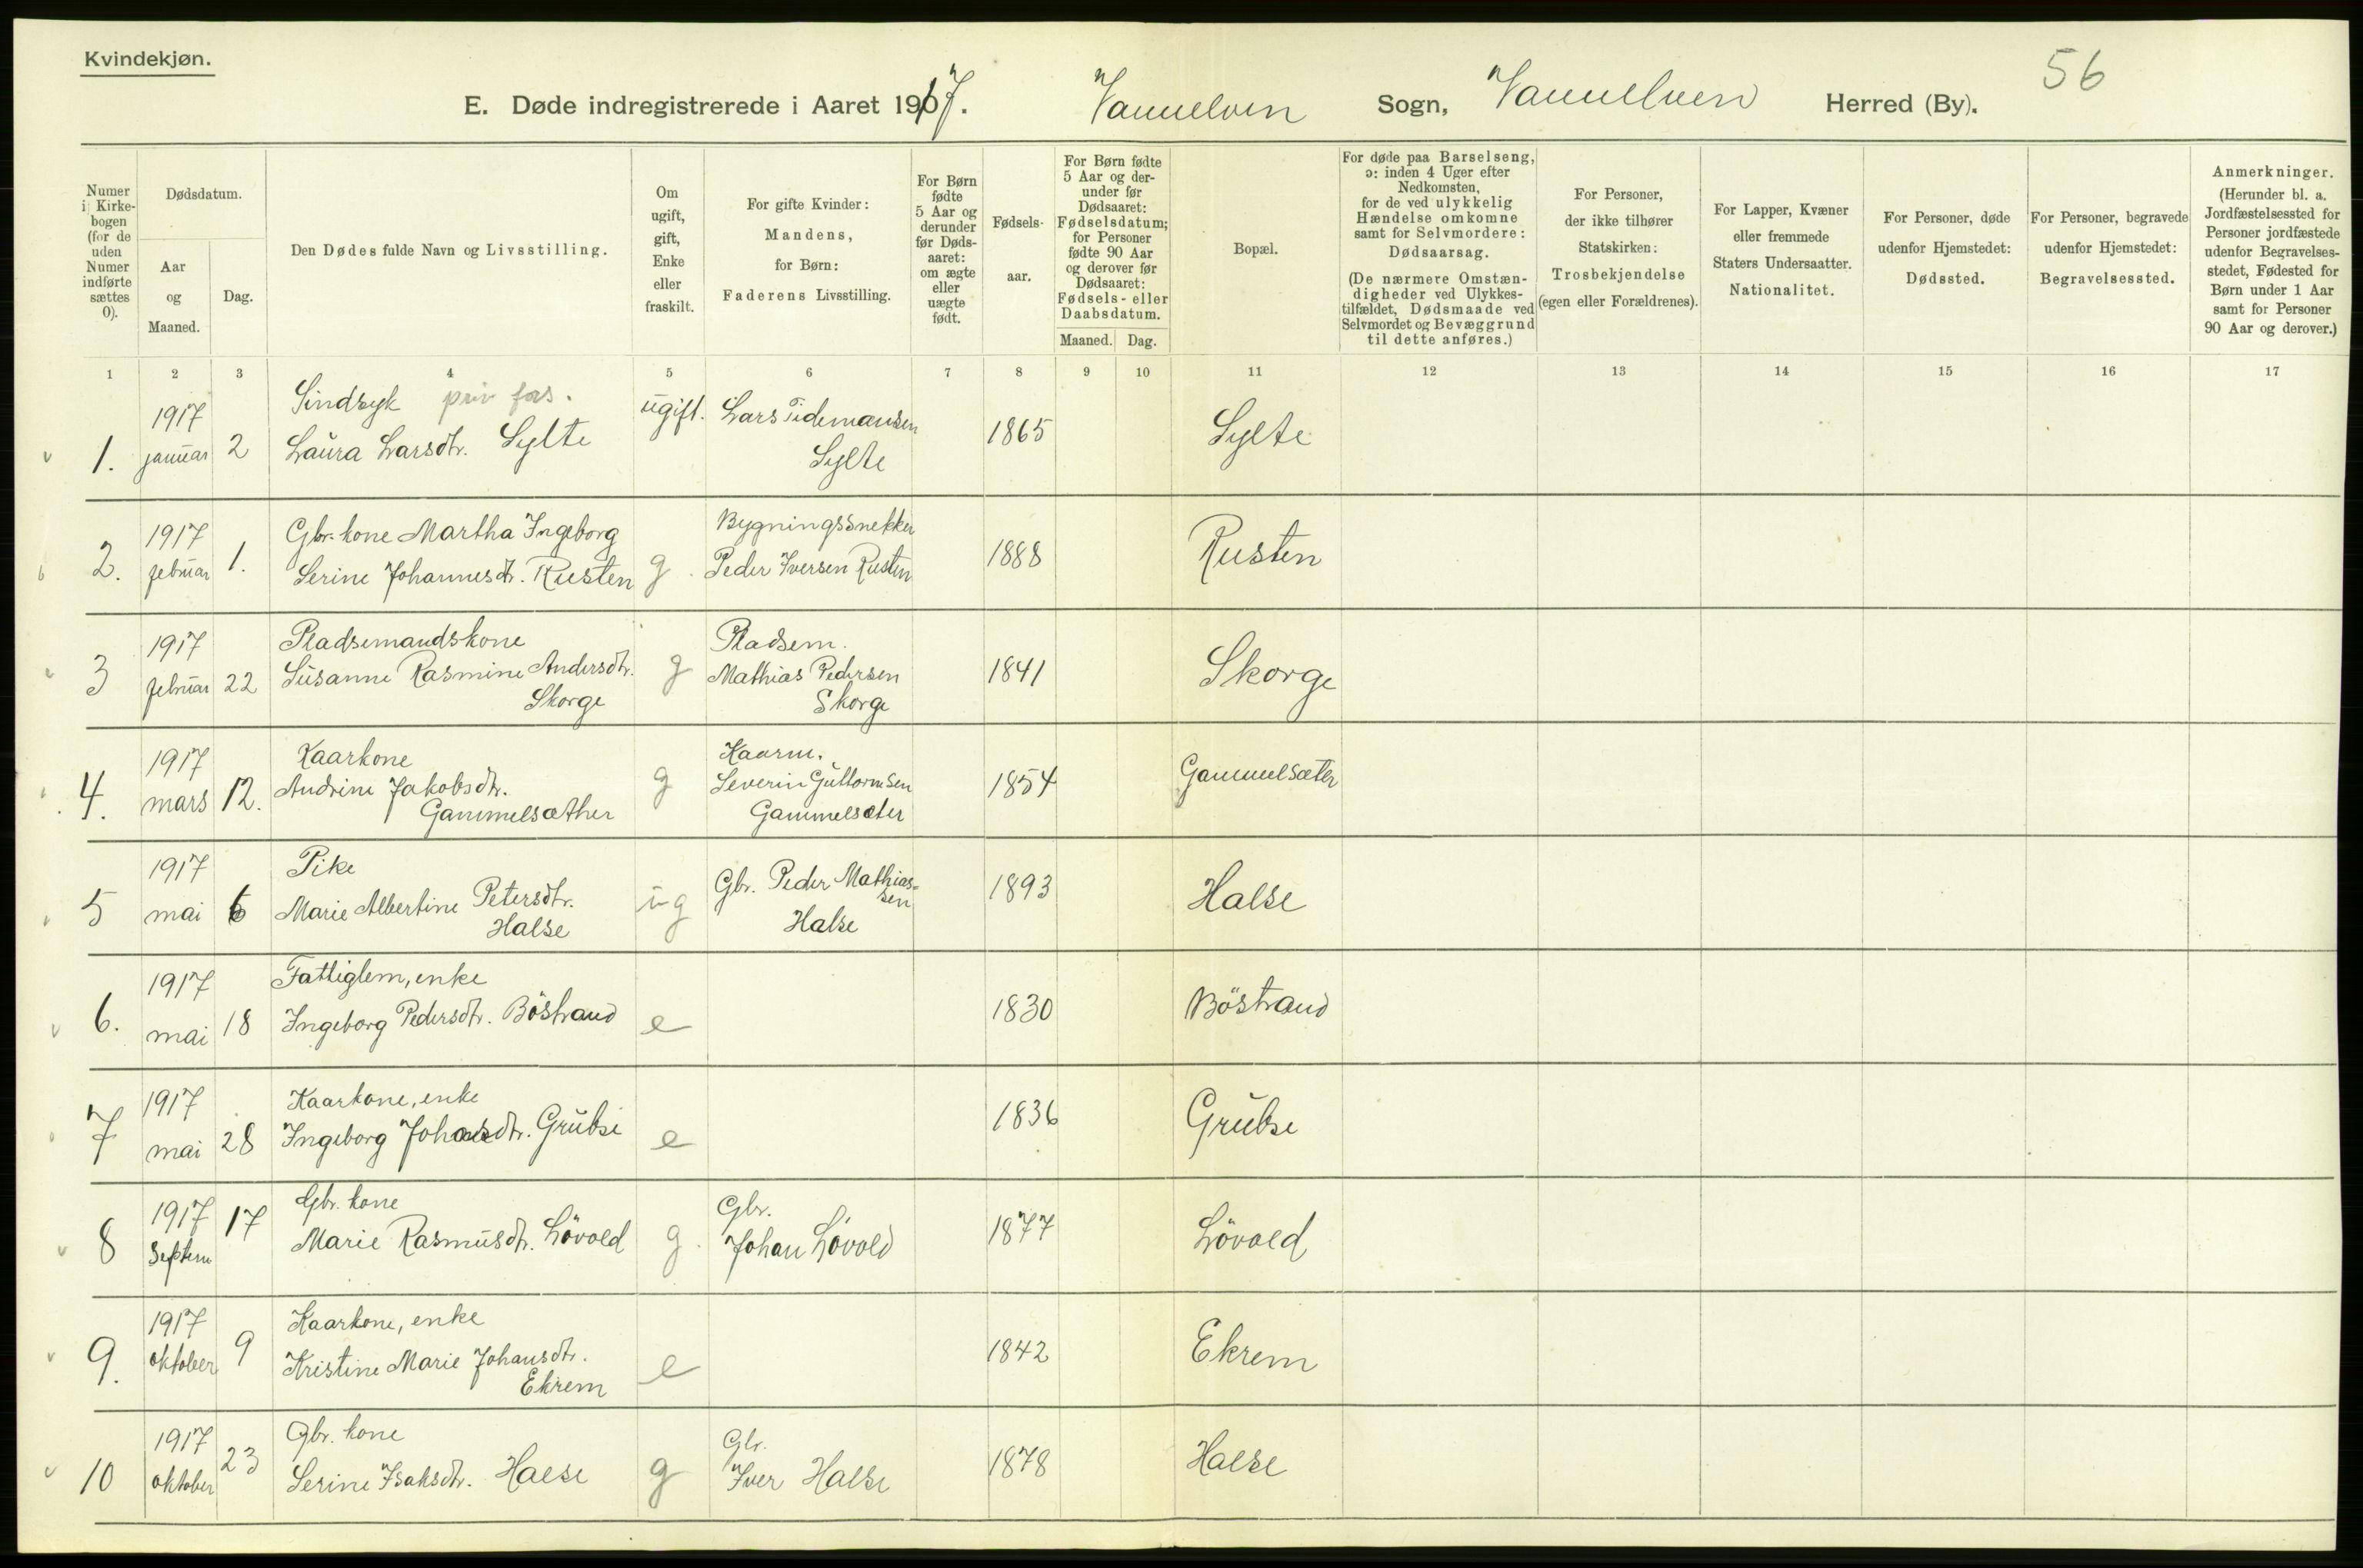 Kvindekjøn.
56
E. Døde indregistrerede i Aaret 1917. Vannelven Sogn, Vannelven Herred (By).
Numer i Kirkebogen (for de uden Numer indførte sættes 0).
Dødsdatum.
Aar og Maaned.
Dag.
Den Dødes fulde Navn og Livsstilling.
Om ugift, gift, Enke eller fraskilt.
For gifte Kvinder: Mandens, for Børn: Faderens Livsstilling.
For Børn fødte 5 Aar og derunder før Dødsaaret: om ægte eller uægte født.
Fødselsaar.
For Børn fødte 5 Aar og derunder før Dødsaaret: Fødselsdatum; for Personer fødte 90 Aar og derover før Dødsaaret: Fødsels- eller Daabsdatum.
Maaned. Dag.
Bopæl.
For døde paa Barselseng, ɔ: inden 4 Uger efter Nedkomsten, for de ved ulykkelig Hændelse omkomne samt for Selvmordere: Dødsaarsag.
(De nærmere Omstændigheder ved Ulykkestilfældet, Dødsmaade ved Selvmordet og Bevæggrund til dette anføres.)
For Personer, der ikke tilhører Statskirken: Trosbekjendelse (egen eller Forældrenes).
For Lapper, Kvæner eller fremmede Staters Undersaatter. Nationalitet.
For Personer, døde udenfor Hjemstedet: Dødssted.
For Personer, begravede udenfor Hjemstedet: Begravelsessted.
Anmerkninger.
(Herunder bl. a. Jordfæstelsessted for Personer jordfæstede udenfor Begravelsesstedet, Fødested for Børn under 1 Aar samt for Personer 90 Aar og derover.)
1 2 3 4 5 6 7 8 9 10 11 12 13 14 15 16 17
1. 1917 januar 2 Sindsyk priv fors. Laura Larsdtr. Sylte ugift. Lars Tidemansen Sylte 1865 Sylte
2. 1917 februar 1. Gbr. kone Martha Ingeborg Serine Johannesdtr. Rusten g. Bygningssnekker Peder Iversen Rusten 1888 Rusten
3 1917 februar 22 Pladsemandskone Susanne Rasmine Andersdtr. Skorge g Pladsem. Mathias Pedersen Skorge 1841 Skorge
4. 1917 mars 12. Kaarkone Andrine Jakobsdtr. Gammelsæther g Kaarm. Severin Guttormsen Gammelsæter 1854 Gammelsæter
5 1917 mai 6 Pike Marie Albertine Petersdtr. Halse ug Gbr. Peder Mathiassen Halse 1893 Halse
6. 1917 mai 18 Fattiglem, enke Ingeborg Pedersdtr. Böstrand e 1830 Böstrand
7 1917 mai 28 Kaarkone, enke Ingeborg Johansdtr. Grubse e 1836 Grubse
8 1917 Septem 17 Gbr. kone Marie Rasmusdtr. Lövold g. Gbr. Johan Lövold 1877 Lövold
9. 1917 oktober 9 Kaarkone, enke Kristine Marie Johansdtr. Ekrem e 1842 Ekrem
10 1917 oktober 23 Gbr. kone Serine Isaksdtr. Halse g Gbr. Iver Halse 1878 Halse